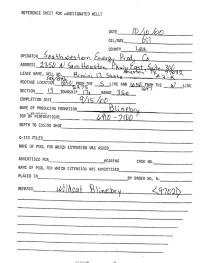 REFERENCE SHEET FOR UNDESIGNATED WELLS
DATE 10/10/00
OIL/GAS Oil
COUNTY Lea
OPERATOR Southwestern Energy Prod. Co
ADDRESS 2350 N Sam Houston Pkwy East, Suite 300
LEASE NAME, WELL NO.
FOOTAGE LOCATION FROM THE S LINE AND FROM THE LINE
SECTION 13 TOWNSHIP RANGE 35e
COMPLETION DATE 9/15/00
NAME OF PRODUCING FORMATION Blinebry
TOP OF PERFORATIONS
DEPTH TO CASING SHOE
C-123 FILED
NAME OF POOL FOR WHICH EXTENSION WAS ASKED
ADVERTISED FOR HEARING CASE NO.
NAME OF POOL FOR WHICH EXTENSION WAS ADVERTISED
PLACED IN BY ORDER NO. R-
REMARKS Wildcat Blinebry <97021>